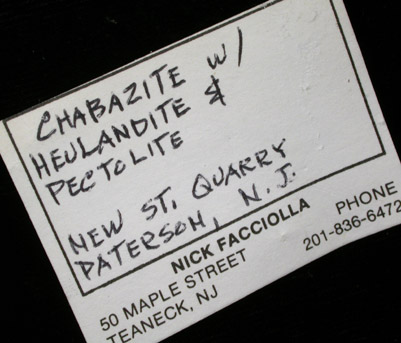 CHABAZITE W/
HEULANDITE &
PECTOLITE
NEW ST. QUARRY
PATERSON, N.J.
NICK FACCIOLLA
50 MAPLE STREET
TEANECK, NJ
PHONE
201-836-6472